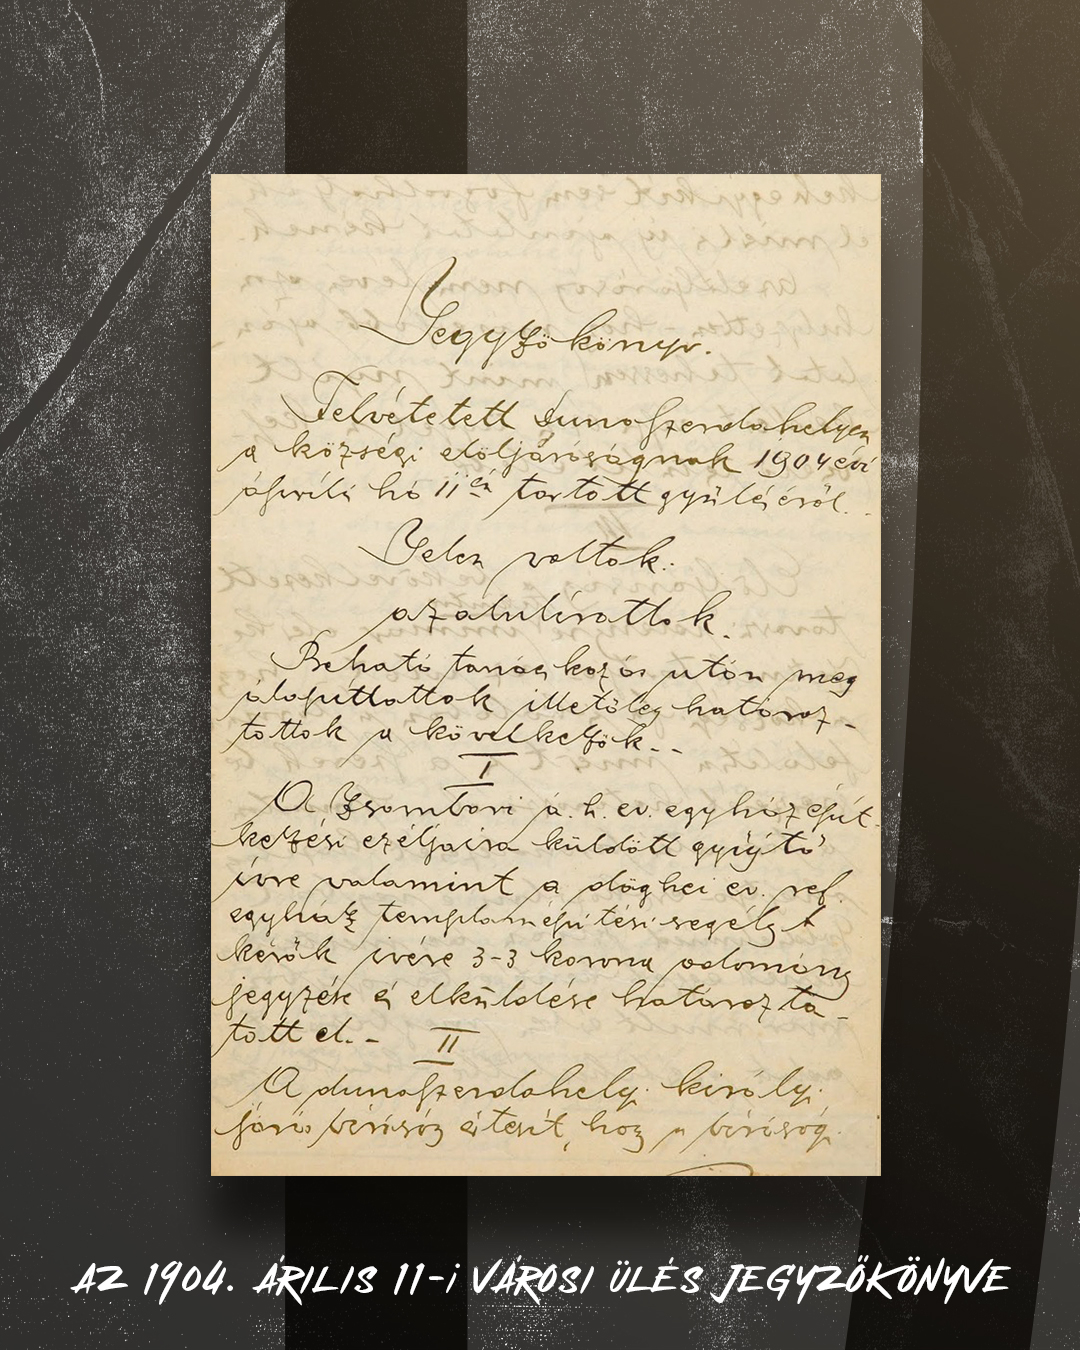 Jegyzőkönyv.
Felvétetett Dunaszerdahelyen
a községi elöljáróságnak 1904 évi
április hó 11én tartott gyűléséről.
Jelen voltak:
az alulírottak.
Beható tanácskozás után meg
álapíttattak illetőleg határoz-
tattak a következők.-
I
A Zsombori á. h. ev. egyház épít-
kezési czéljaira küldött gyűjtő
ívre valamint a döghei ev. ref.
egyház templom építési segélyt
kérők ívére 3-3 korona adomány
jegyzése és elküldése határozta-
tott el.-
II
A dunaszerdahelyi királyi
járásbíróság értesít, hogy a bíróság
AZ 1904. ÁRILIS 11-i VÁROSI ÜLÉS JEGYZŐKÖNYVE